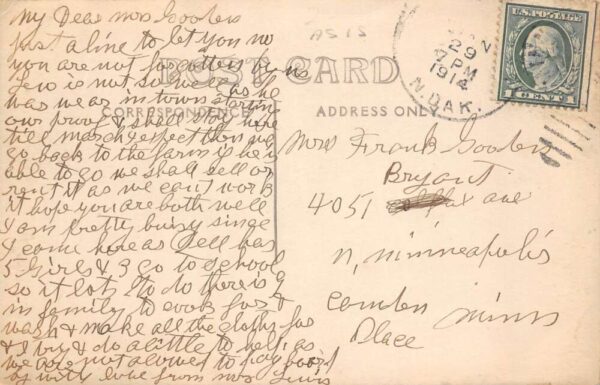 My Dear Mrs Goolers
just a line to let you no
you are not forgotten
Lew is not so well as he
was we ar in town
our prove &
till march expect then we
go back to the farm if he is
able to go we shall sell or
rent it as we can't work
it hope you are both well
I am pretty buisy since
I come here as Dell has
5 girls & 3 go to school
so it lots to do there is 9
in family to cook for &
wash & make all the cloths for
& I try & do a little to help as
we are not alowed to pay board
with love from Mrs Lewis
AS IS
POST CARD
CORRESPONDENCE
ADDRESS ONLY
29
7 PM
1914
N. DAK.
U.S. POSTAGE
1 CENT 1
Mrs Frank Goolers
Bryant
4051 ave
N, Minneapolis
Camden Minn
Place